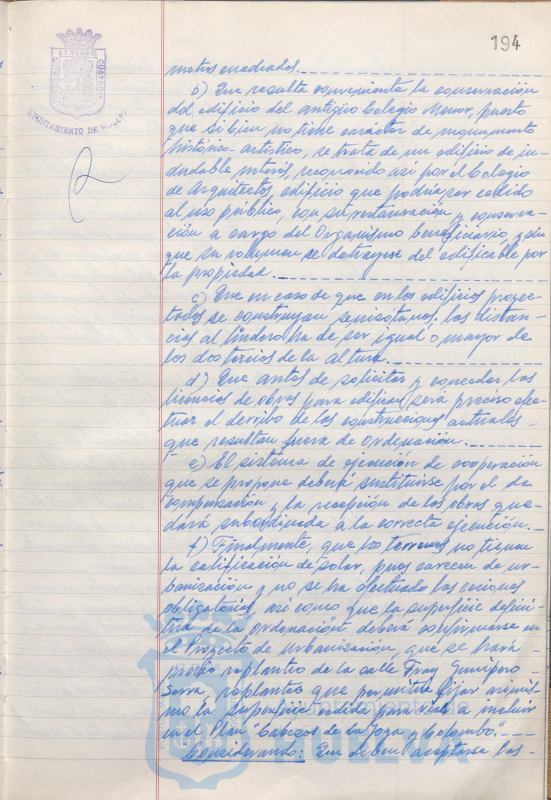 194
AYUNTAMIENTO DE HUELVA
metros cuadrados.
b) Que resulta conveniente la conservación
del edificio del antiguo Colegio Menor, puesto
que si bien no tiene carácter de monumento
histórico-artístico, se trata de un edificio de in-
dudable interés, reconocido así por el Colegio
de Arquitectos, edificio que podría ser cedido
al uso público, con su restauración y conserva-
ción a cargo del Organismo beneficiario y sin
que su volumen se detrayese del edificable por
la propiedad.
c) Que en caso de que en los edificios proyec-
tados se construyan semisótanos, las distan-
cias al lindero ha de ser igual o mayor de
los dos tercios de la altura.
d) Que antes de solicitar y conceder las
licencias de obras para edificar será preciso efec-
tuar el derribo de las construcciones actuales
que resultan fuera de ordenación.
e) El sistema de ejecución de cooperación
que se propone deberá sustituirse por el de
compensación y la recepción de las obras que-
dará subordinada a la correcta ejecución.
f) Finalmente, que los terrenos no tienen
la calificación de solar, pues carecen de ur-
banización y no se ha efectuado las cesiones
obligatorias, así como que la superficie defini-
tiva de la ordenación deberá confirmarse en
el Proyecto de Urbanización, que se hará
previo replanteo de la calle Fray Junípero
Serra, replanteo que permitirá fijar asimis-
mo la superficie cedida para vial a incluir
en el Plan "Cabezos de la Joya y Colombo".
Considerando: Que deben aceptarse las